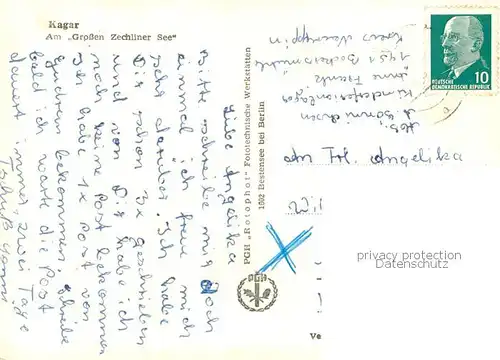 Kagar
Am „Großen Zechliner See"
Liebe Angelika
Bitte schreibe mir doch
einmal, ich freu mich
sehr darüber. Ich habe
Dir schon 3x geschrieben
und von Dir habe ich
noch keine Post bekommen
Ich habe 1x Post von
Gudrun bekommen. Schreibe
bald ich warte die Post
dauert immer zwei Tage
PGH „Rotophot" Fototechnische Werkstätten
1602 Bestensee bei Berlin
Kinderferienlager
1951
Kreis Neuruppin
An Frl. Angelika
DEUTSCHE
DEMOKRATISCHE REPUBLIK
10
privacy protection
Datenschutz
Ve